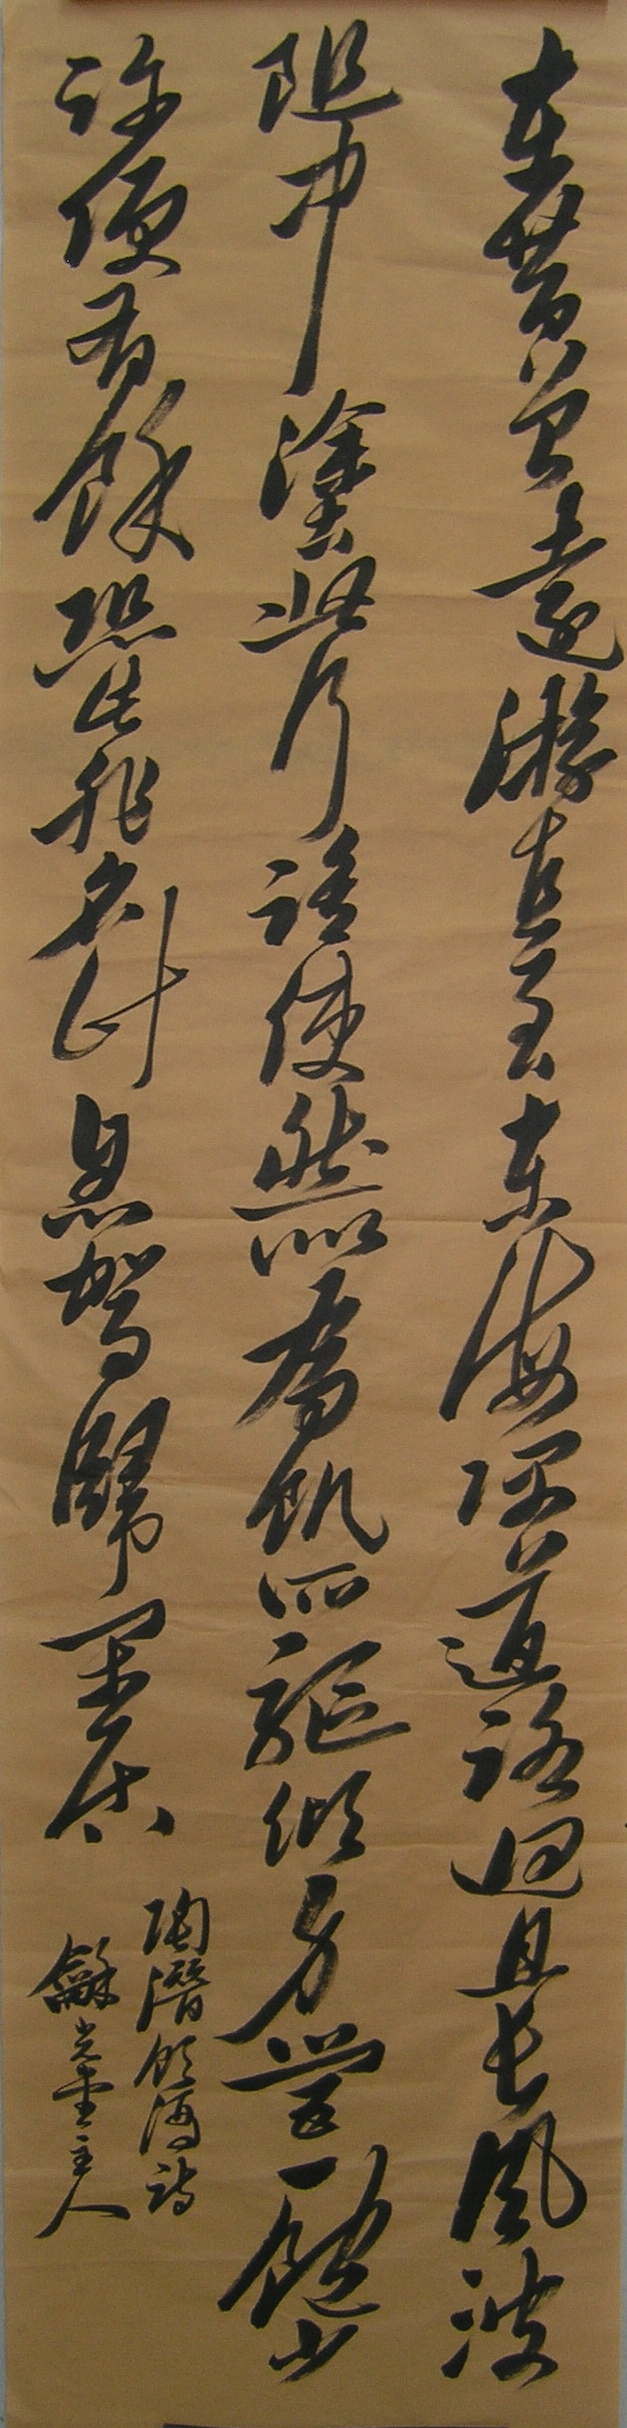 在昔曾遠游直至東海隅道路迴且長風波
阻中塗此行誰使然似為飢所驅傾身營一飽少
許便有餘恐此非名計息駕歸閑居
陶潛飲酒詩
龢光主人